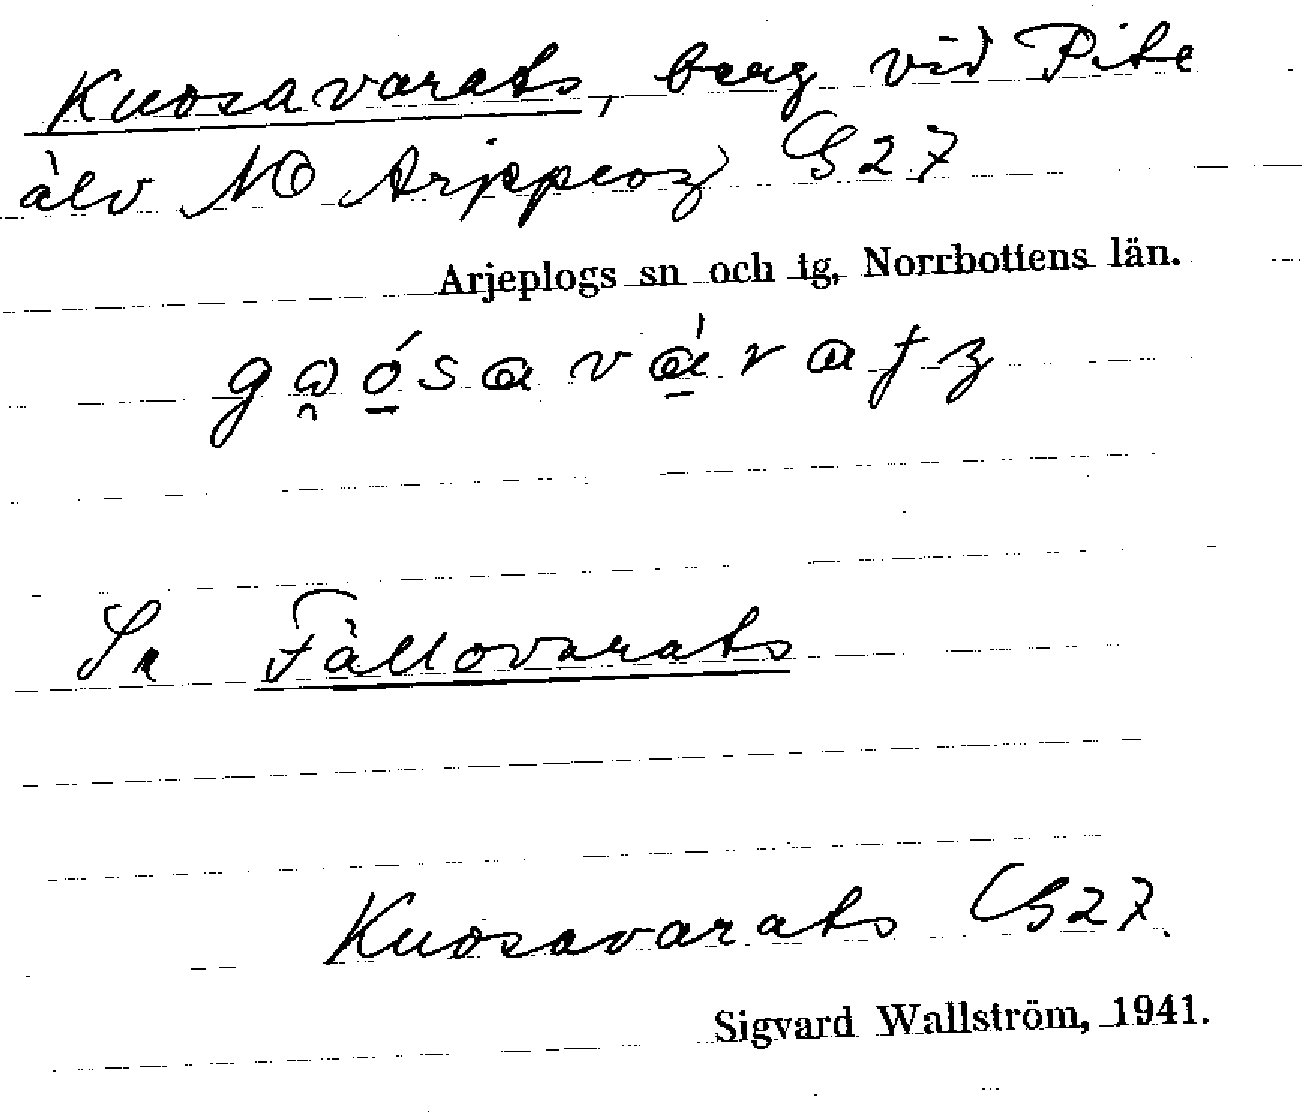 Kuosavarats, berg vid Pite
älv NO Arjeplog G 27
Arjeplogs sn och tg, Norrbottens län.
Se Fällovarats
Kuosavarats G 27.
Sigvard Wallström, 1941.